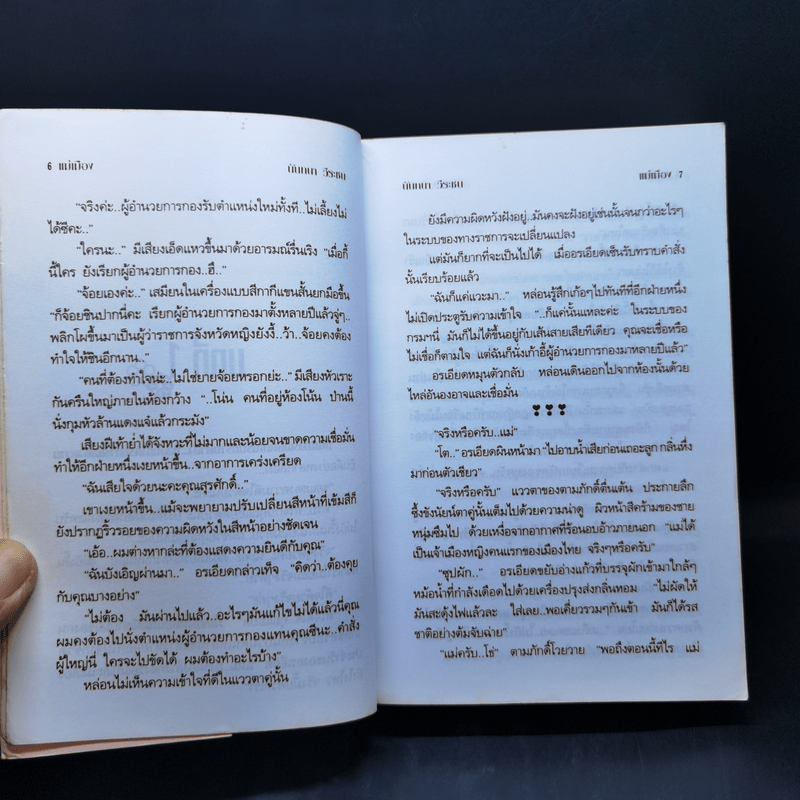 6 แม่เมือง
นันทนา วีระชน
"จริงค่ะ..ผู้อำนวยการกองรับตำแหน่งใหม่ทั้งที..ไม่เลี้ยงไม่
ได้ซีคะ.."
"ใครนะ.." มีเสียงเอ็ดแหวขึ้นมาด้วยอารมณ์รื่นเริง "เมื่อกี้
นี้ใคร ยังเรียกผู้อำนวยการกอง..ฮื้อ"
"จ้อยเองค่ะ.." เสมียนในเครื่องแบบสีกากีแขนสั้นยกมือขึ้น
"ก็จ้อยชินปากนี่คะ เรียกผู้อำนวยการกองมาตั้งหลายปีแล้วจู่ๆ..
พลิกโผขึ้นมาเป็นผู้ว่าราชการจังหวัดหญิงยังงี้..ว้า..จ้อยคงต้อง
ทำใจให้ชินอีกนาน.."
"คนที่ต้องทำใจน่ะ..ไม่ใช่ยายจ้อยหรอกย่ะ.." มีเสียงหัวเราะ
กันครืนใหญ่ภายในห้องกว้าง "..โน่น คนที่อยู่ห้องโน้น ป่านนี้
นั่งกุมหัวล้านแดงแจ๋แล้วกระมัง"
เสียงฝีเท้าย่ำได้จังหวะที่ไม่มากและน้อยจนขาดความเชื่อมั่น
ทำให้อีกฝ่ายหนึ่งเงยหน้าขึ้น..จากอาการเคร่งเครียด
"ฉันเสียใจด้วยนะคะคุณสุรศักดิ์.."
เขาเงยหน้าขึ้น..แม้จะพยายามปรับเปลี่ยนสีหน้าที่เข้มสีก็
ยังปรากฏริ้วรอยของความผิดหวังในสีหน้าอย่างชัดเจน
"เอ้อ..ผมต่างหากล่ะที่ต้องแสดงความยินดีกับคุณ"
"ฉันบังเอิญผ่านมา.." อรเอียดกล่าวเท็จ "คิดว่า..ต้องคุย
กับคุณบางอย่าง"
"ไม่ต้อง มันผ่านไปแล้ว..อะไรๆมันแก้ไขไม่ได้แล้วนี่คุณ
ผมคงต้องไปนั่งตำแหน่งผู้อำนวยการกองแทนคุณซีนะ..คำสั่ง
ผู้ใหญ่นี่ ใครจะไปขัดได้ ผมต้องทำอะไรบ้าง"
หล่อนไม่เห็นความเข้าใจที่ดีในแววตาคู่นั้น
นันทนา วีระชน
แม่เมือง 7
ยังมีความผิดหวังฝังอยู่..มันคงจะฝังอยู่เช่นนั้นจนกว่าอะไรๆ
ในระบบของทางราชการจะเปลี่ยนแปลง
แต่มันก็ยากที่จะเป็นไปได้ เมื่ออรเอียดเซ็นรับทราบคำสั่ง
นั้นเรียบร้อยแล้ว
"ฉันก็แค่แวะมา.." หล่อนรู้สึกเก้อๆไปทันทีที่อีกฝ่ายหนึ่ง
ไม่เปิดประตูรับความเข้าใจ "..ก็แค่นั้นแหละค่ะ ในระบบของ
กรมฯนี่ มันก็ไม่ได้ขึ้นอยู่กับเส้นสายเสียทีเดียว คุณจะเชื่อหรือ
ไม่เชื่อก็ตามใจ แต่ฉันก็นั่งเก้าอี้ผู้อำนวยการกองมาหลายปีแล้ว"
อรเอียดหมุนตัวกลับ หล่อนเดินออกไปจากห้องนั้นด้วย
ไหล่อันองอาจและเชื่อมั่น
"จริงหรือครับ..แม่"
"โต.." อรเอียดผินหน้ามา "ไปอาบน้ำเสียก่อนเถอะลูก กลิ่นหึ่ง
มาก่อนตัวเชียว"
"จริงหรือครับ" แววตาของตามภักดิ์ตื่นเต้น ประกายลึก
ซึ้งขังนัยน์ตาคู่นั้นเต็มไปด้วยความน่าดู ผิวหน้าสีคร้ามของชาย
หนุ่มซึมไป ด้วยเหงื่อจากอากาศที่ร้อนอบอ้าวภายนอก "แม่ได้
เป็นเจ้าเมืองหญิงคนแรกของเมืองไทย จริงๆหรือครับ"
"ซุปผัก.." อรเอียดขยับอ่างแก้วที่บรรจุผักเข้ามาใกล้ๆ
หม้อน้ำที่กำลังเดือดไปด้วยเครื่องปรุงส่งกลิ่นหอม "ไม่ผัดให้
มันสะดุ้งไฟแล้วละ ใส่เลย..พอเคี่ยวรวมๆกันเข้า มันก็ได้รส
ชาติอย่างต้มจับฉ่าย"
"แม่ครับ..โธ่" ตามภักดิ์โวยวาย "พอถึงตอนนี้ทีไร แม่